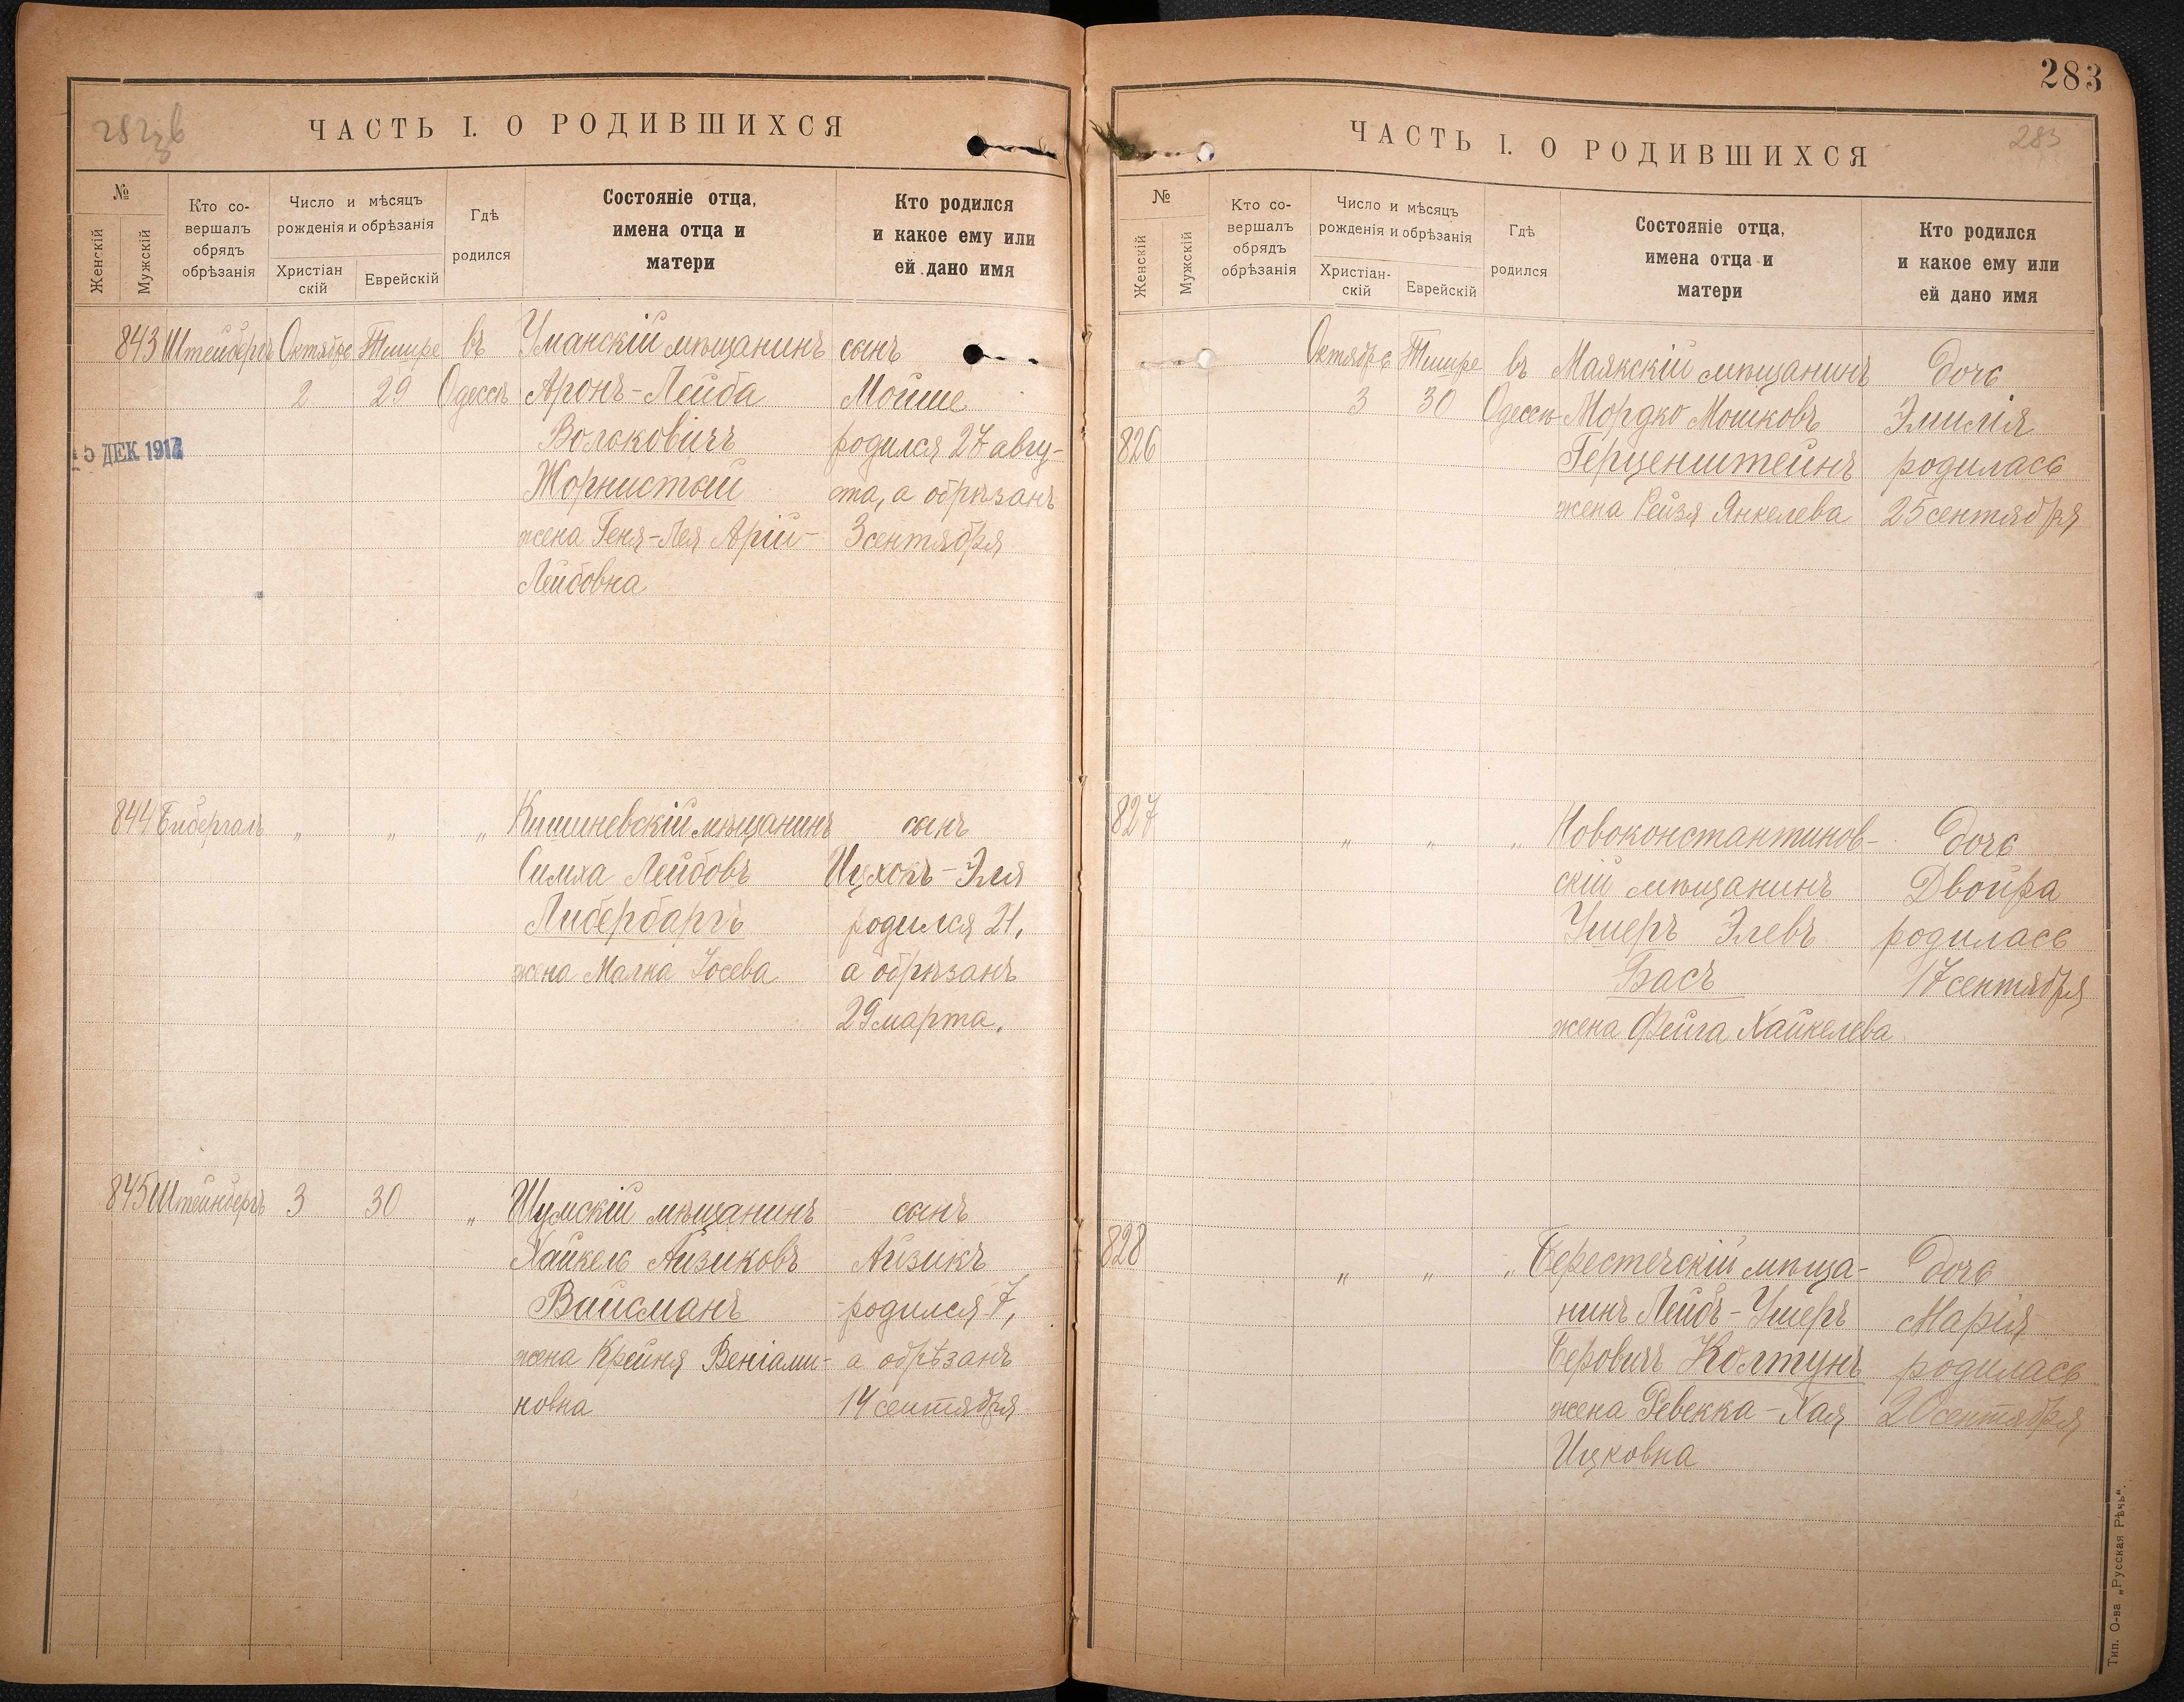 283
ЧАСТЬ I. О РОДИВШИХСЯ
№
Женскій
Мужскій
Кто со-
вершалъ
обрядъ
обрѣзанія
Число и мѣсяцъ
рожденія и обрѣзанія
Христіан
скій
Еврейскій
Гдѣ
родился
Состояніе отца,
имена отца и
матери
Кто родился
и какое ему или
ей дано имя
843 Штейнбергъ Октября Тишре въ Уманскій мѣщанинъ сынъ
2 29 Одессѣ Аронъ-Лейба Мойше
Вольковичъ родился 27 авгу-
15 ДЕК 1912
Жорнистый ста, а обрѣзанъ
жена Геня-Лея Арій- 3 сентября
Лейбовна
844 " " " Кишиневскій мѣщанинъ сынъ
Симха Лейбовъ Ицхокъ-Эля
Либербаргъ родился 21,
жена Малка Іосева а обрѣзанъ
29 марта.
845 Штейнбергъ 3 30 " Шумскій мѣщанинъ сынъ
Хайкель Айзиковъ Айзикъ
Вайсманъ родился 7,
жена Крейня Веніами- а обрѣзанъ
новна 14 сентября
ЧАСТЬ I. О РОДИВШИХСЯ
283
№
Женскій
Мужскій
Кто со-
вершалъ
обрядъ
обрѣзанія
Число и мѣсяцъ
рожденія и обрѣзанія
Христіан-
скій
Еврейскій
Гдѣ
родился
Состояніе отца,
имена отца и
матери
Кто родился
и какое ему или
ей дано имя
Октября Тишре въ Маякскій мѣщанинъ дочь
3 30 Одессѣ Мордко Мошковъ Эмилія
826 Герценштейнъ родилась
жена Рейзя Янкелева 25 сентября
827 " " " Новоконстантинов- дочь
скій мѣщанинъ Двойра
Ушеръ Элевъ родилась
Басъ 17 сентября
жена Фейга Хайкелева
828 " " " Берестечскій мѣща- дочь
нинъ Лейбъ-Ушеръ Марія
Беровичъ Колтунъ родилась
жена Ревекка-Хая 20 сентября
Ицковна
Тип. О-ва „Русская Рѣчь".